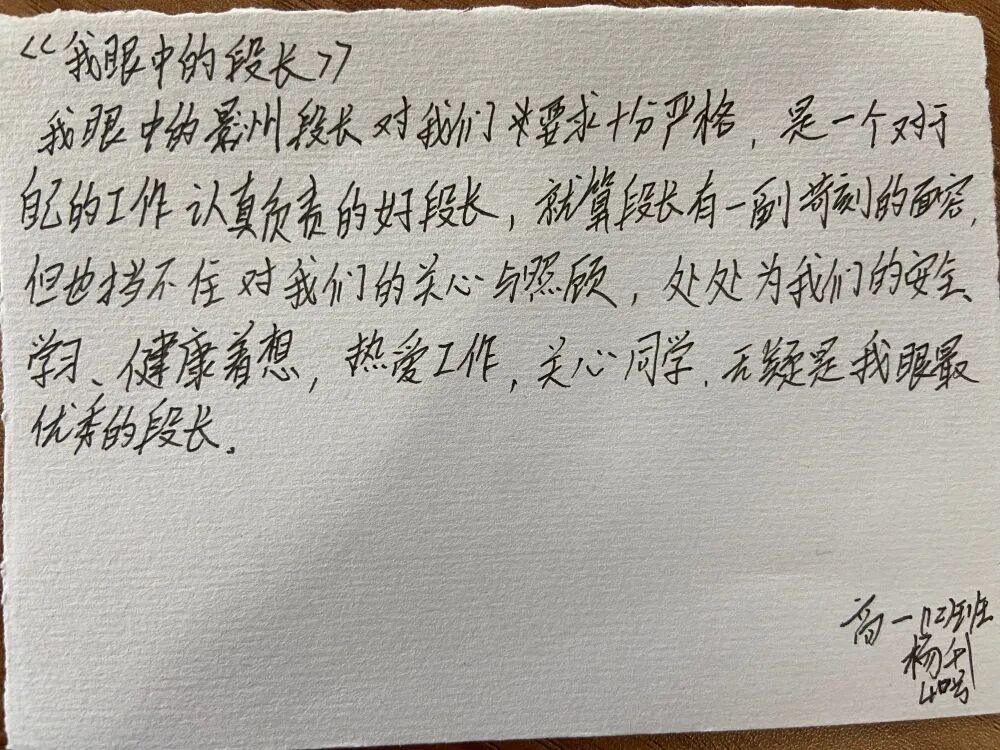 <<我眼中的段长>>
我眼中的景州段长对我们要求十分严格,是一个对于
自己的工作认真负责的好段长,就算段长有一副苛刻的面容,
但也挡不住对我们的关心与照顾,处处为我们的安全、
学习、健康着想,热爱工作,关心同学.无疑是我眼最
优秀的段长.
高一(12)班
杨
40号